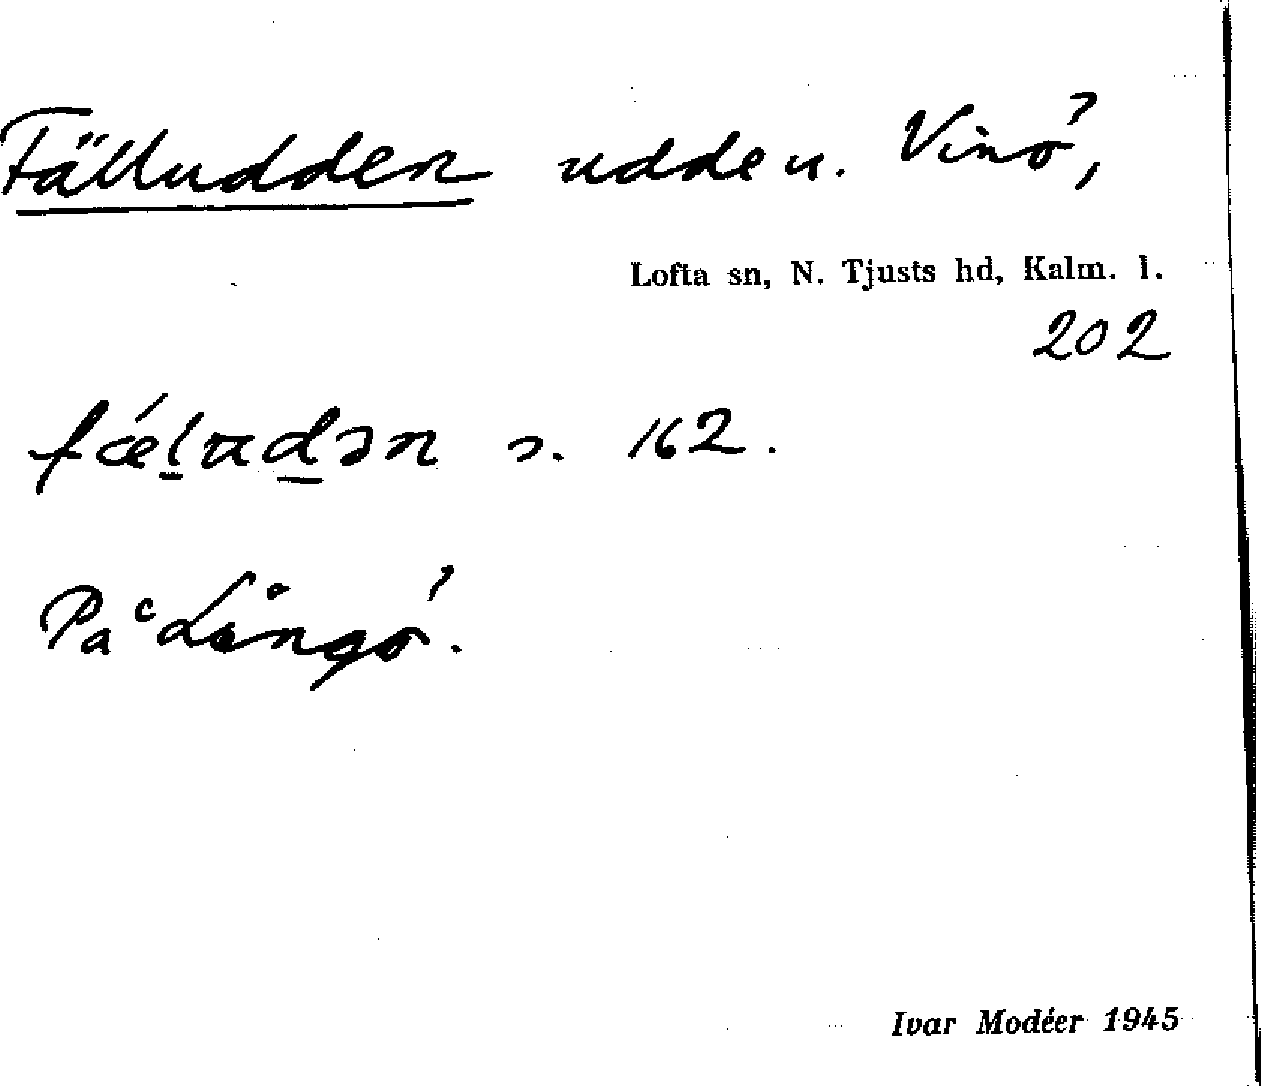 Fälludden udde u. Vinö,
Lofta sn, N. Tjusts hd, Kalm. l.
202
fǽl̠ud̠ən s. 162.
På Långö.
Ivar Modéer 1945